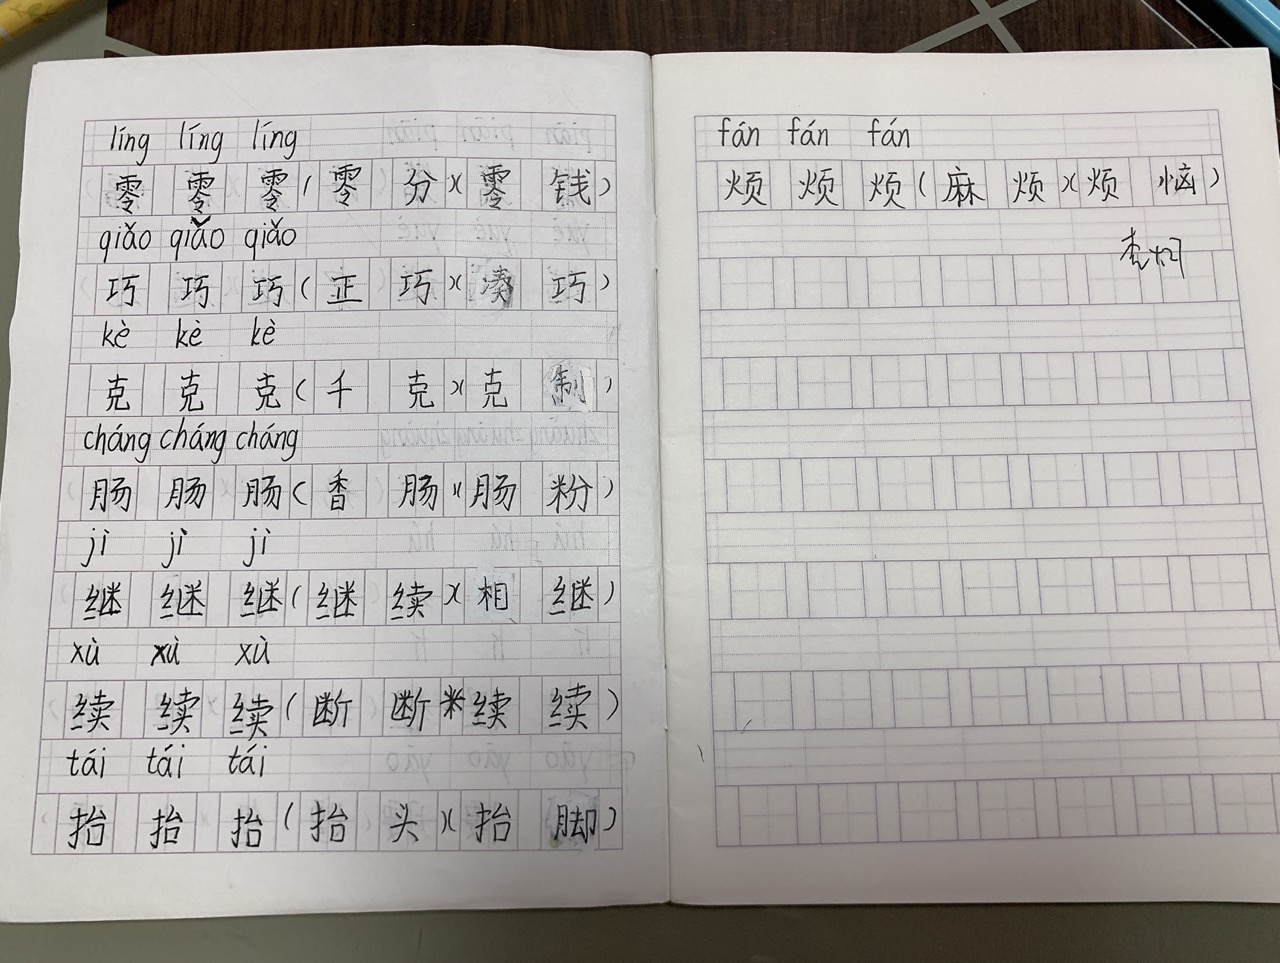 líng líng líng
零 零 零 ( 零 分 ) ( 零 钱 )
qiǎo qiǎo qiǎo
巧 巧 巧 ( 正 巧 ) ( 凑 巧 )
kè kè kè
克 克 克 ( 千 克 ) ( 克 制 )
cháng cháng cháng
肠 肠 肠 ( 香 肠 ) ( 肠 粉 )
jì jì jì
继 继 继 ( 继 续 ) ( 相 继 )
xù xù xù
续 续 续 ( 断 断 续 续 )
tái tái tái
抬 抬 抬 ( 抬 头 ) ( 抬 脚 )
fán fán fán
烦 烦 烦 ( 麻 烦 ) ( 烦 恼 )